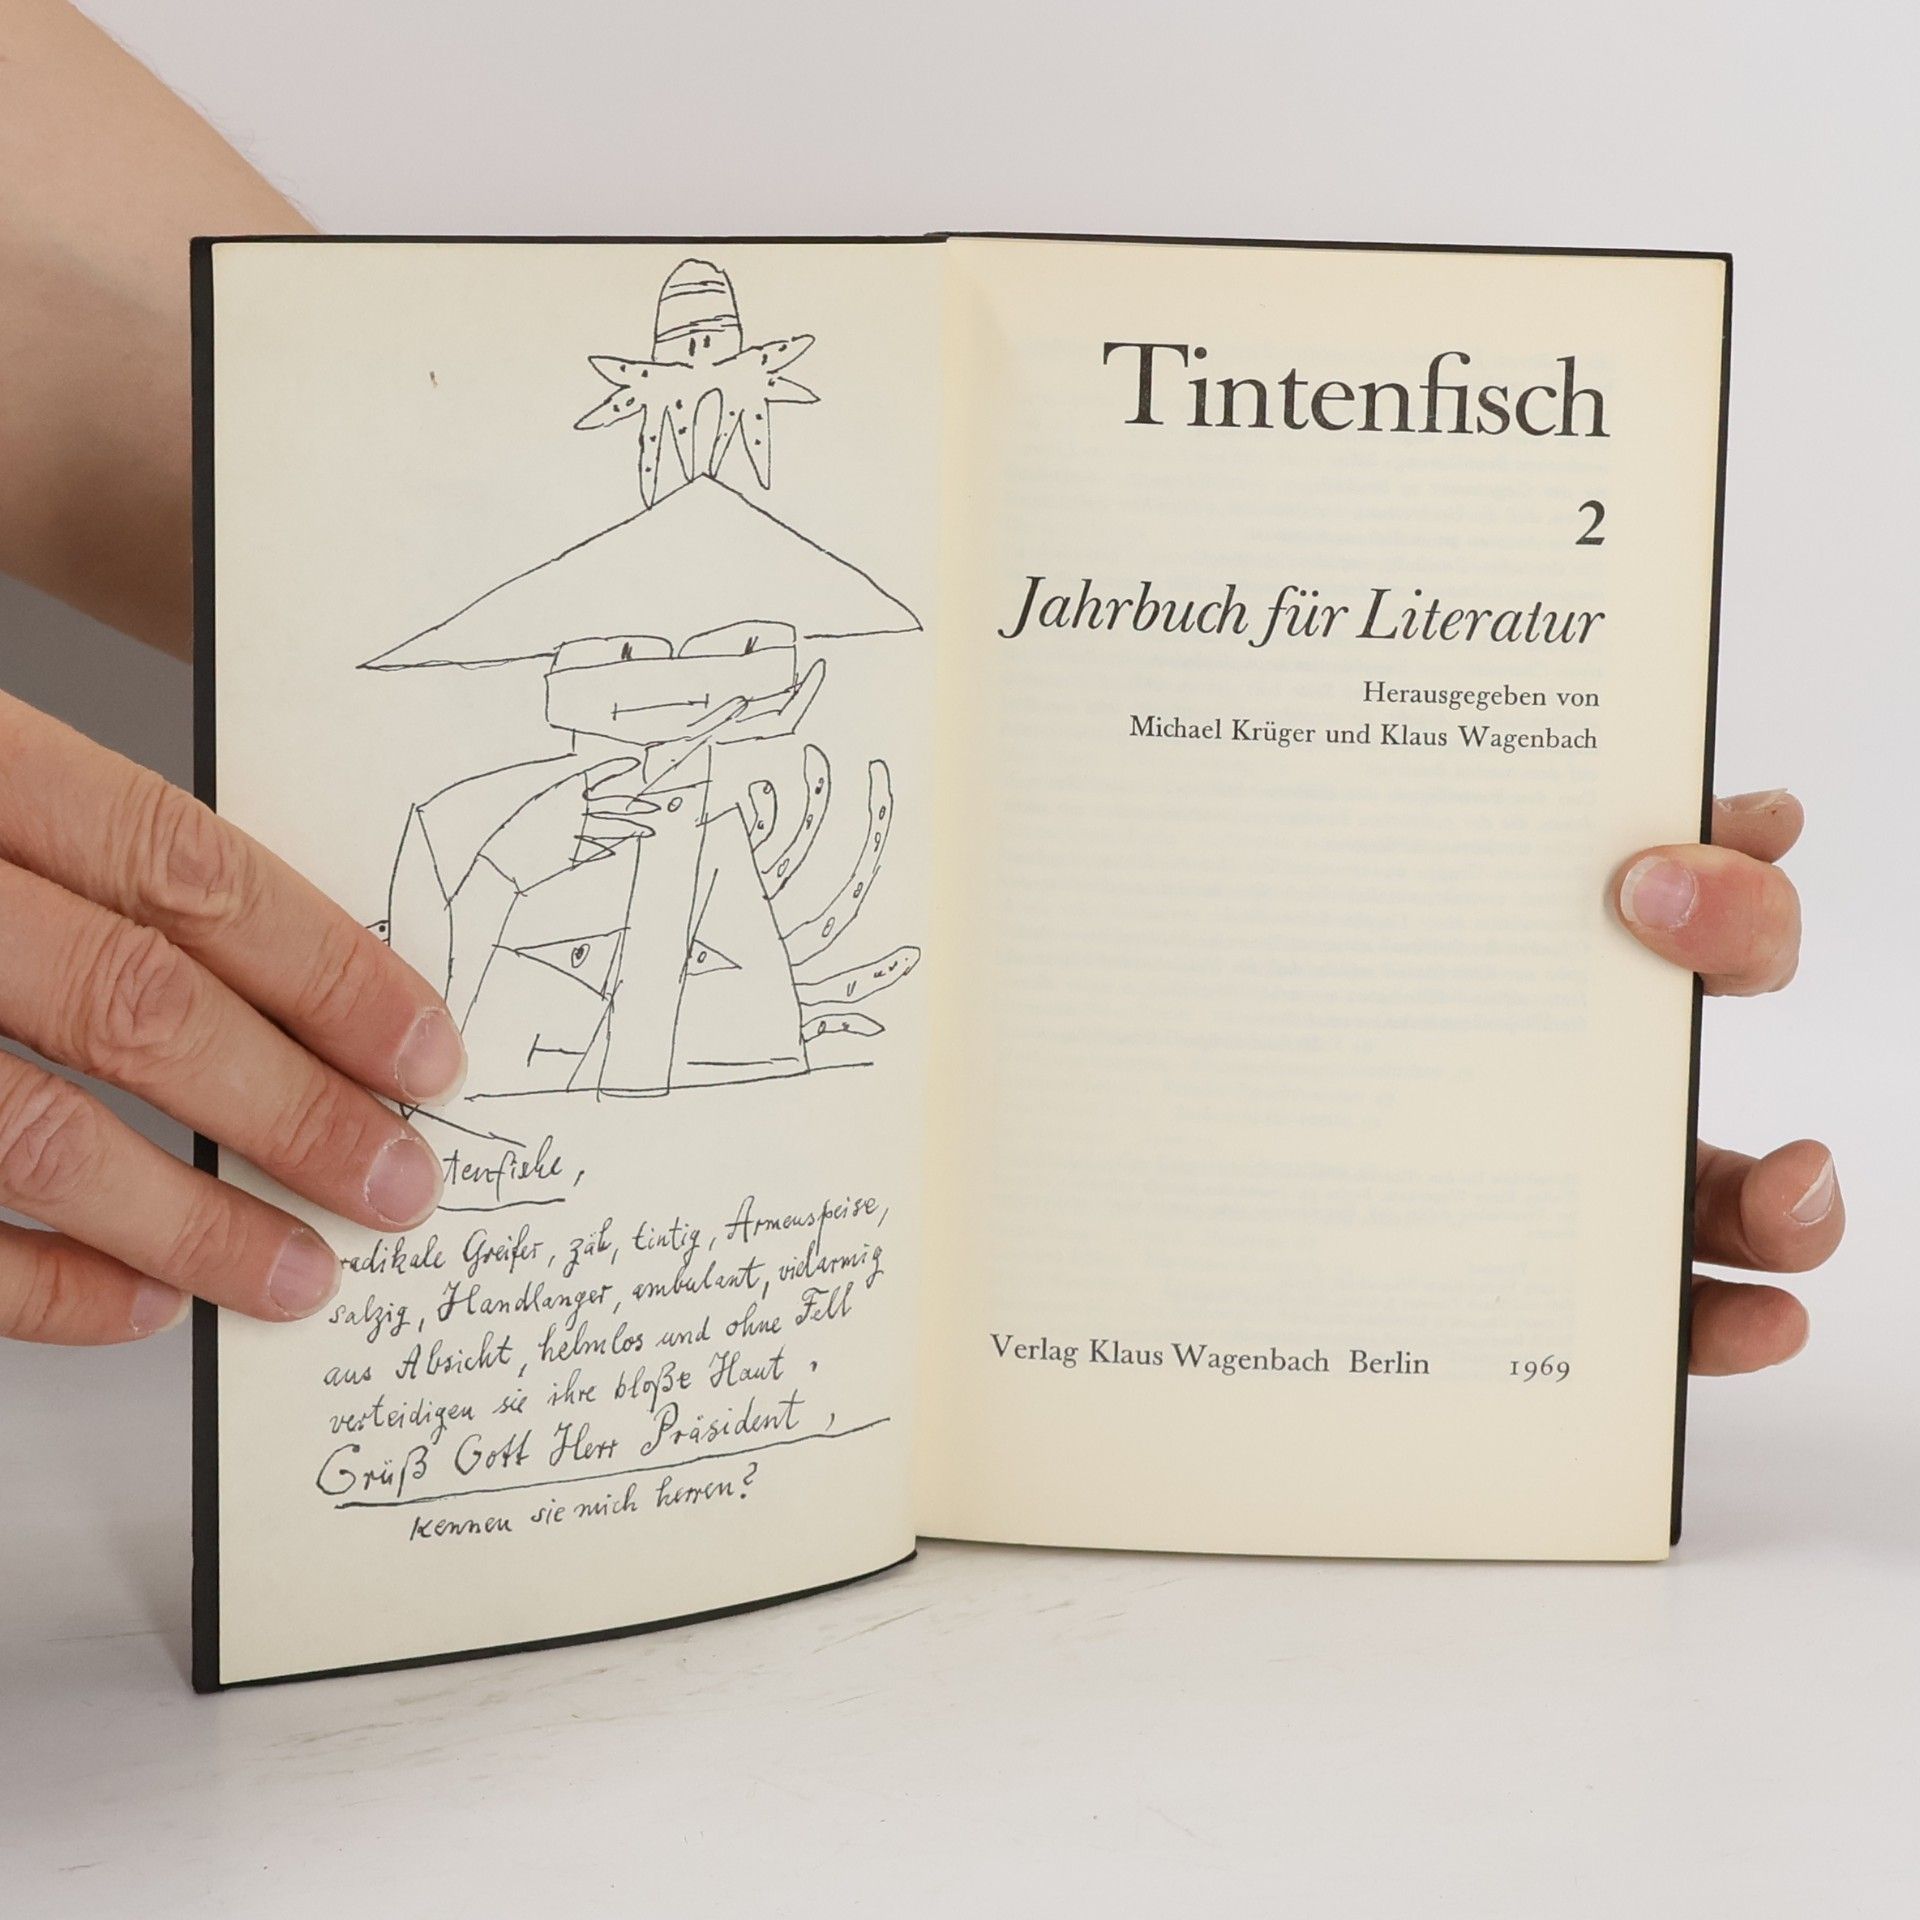 tenfische,
radikale Greifer, zäh, tintig, Armenspeise,
salzig, Handlanger, ambulant, vielarmig
aus Absicht, helmlos und ohne Fell
verteidigen sie ihre bloße Haut,
Grüß Gott Herr Präsident,
kennen sie mich herren?
Tintenfisch
2
Jahrbuch für Literatur
Herausgegeben von
Michael Krüger und Klaus Wagenbach
Verlag Klaus Wagenbach Berlin 1969